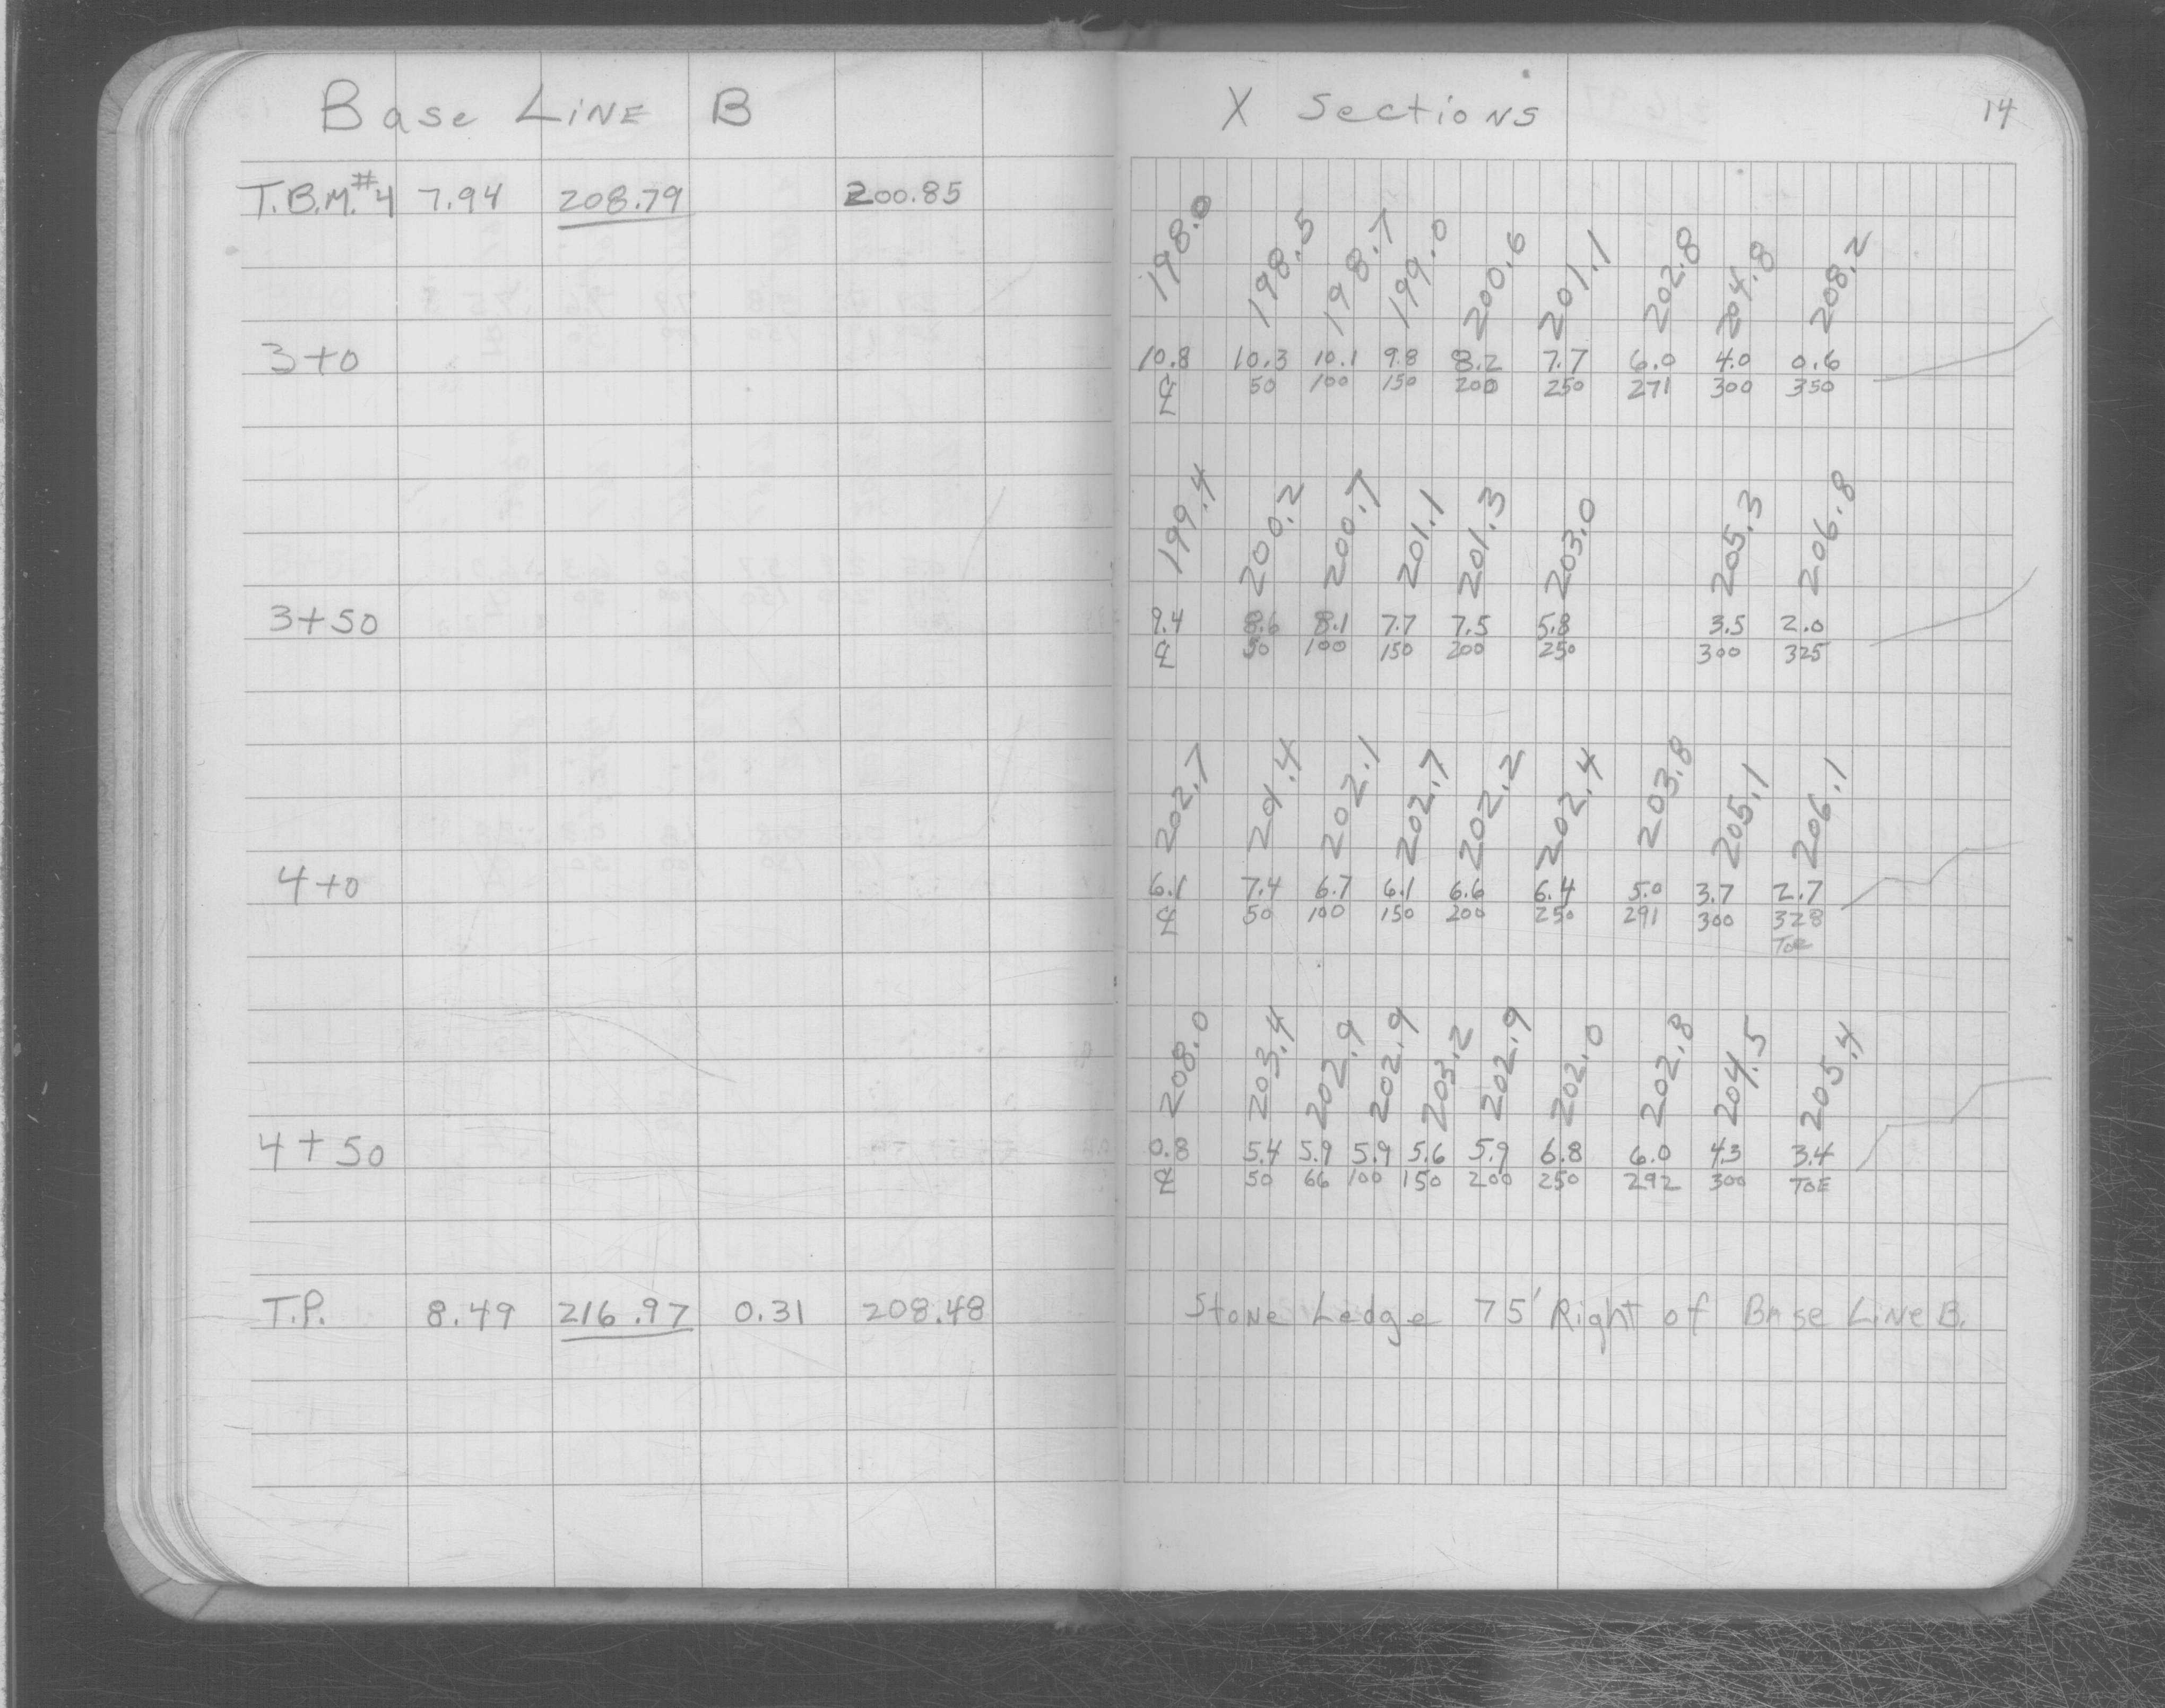 Base Line B
T.B.M.#4 7.94 208.79 200.85
3+0
3+50
4+0
4+50
T.P. 8.49 216.97 0.31 208.48
X Sections 14
198.0 198.5 198.7 199.0 200.6 201.1 202.8 204.8 208.2
10.8 10.3 10.1 9.8 8.2 7.7 6.0 4.0 0.6
℄ 50 100 150 200 250 271 300 350
199.4 200.2 200.7 201.1 201.3 203.0 205.3 206.8
9.4 8.6 8.1 7.7 7.5 5.8 3.5 2.0
℄ 50 100 150 200 250 300 325
202.7 201.4 202.1 202.7 202.2 202.4 203.8 205.1 206.1
6.1 7.4 6.7 6.1 6.6 6.4 5.0 3.7 2.7
℄ 50 100 150 200 250 291 300 328
Toe
208.0 203.4 202.9 202.9 203.2 202.9 202.0 202.8 204.5 205.4
0.8 5.4 5.9 5.9 5.6 5.9 6.8 6.0 4.3 3.4
℄ 50 66 100 150 200 250 292 300 TOE
Stone Ledge 75' Right of Base Line B.